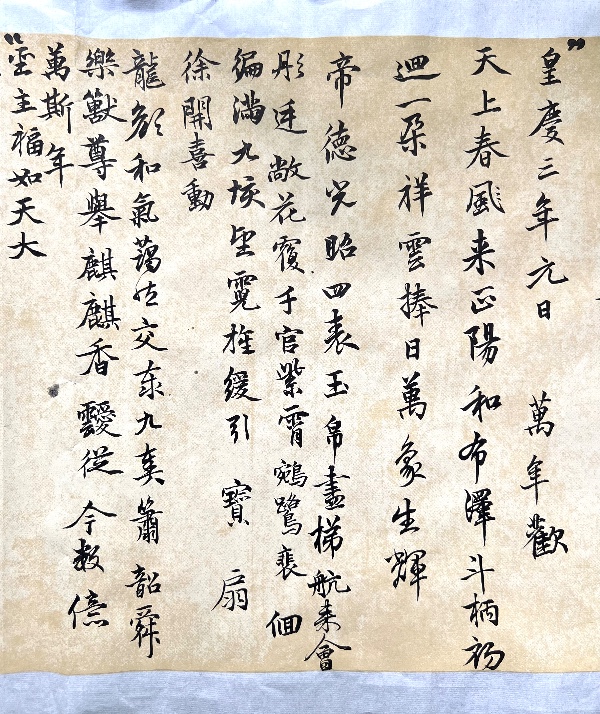 皇慶三年元日 萬年歡
天上春風来正陽和布澤斗柄初
廻一朵祥雲捧日萬象生輝
帝德光昭四表玉帛盡梯航来會
彤廷敞花覆千官紫霄鵷鷺裴佪
徧滿九垓望霓旌緩引寶扇
徐開喜動
龍顔和氣藹然交泰九奏簫韶舜
樂獸尊舉麒麟香靉從今數億
萬斯年
聖主福如天大